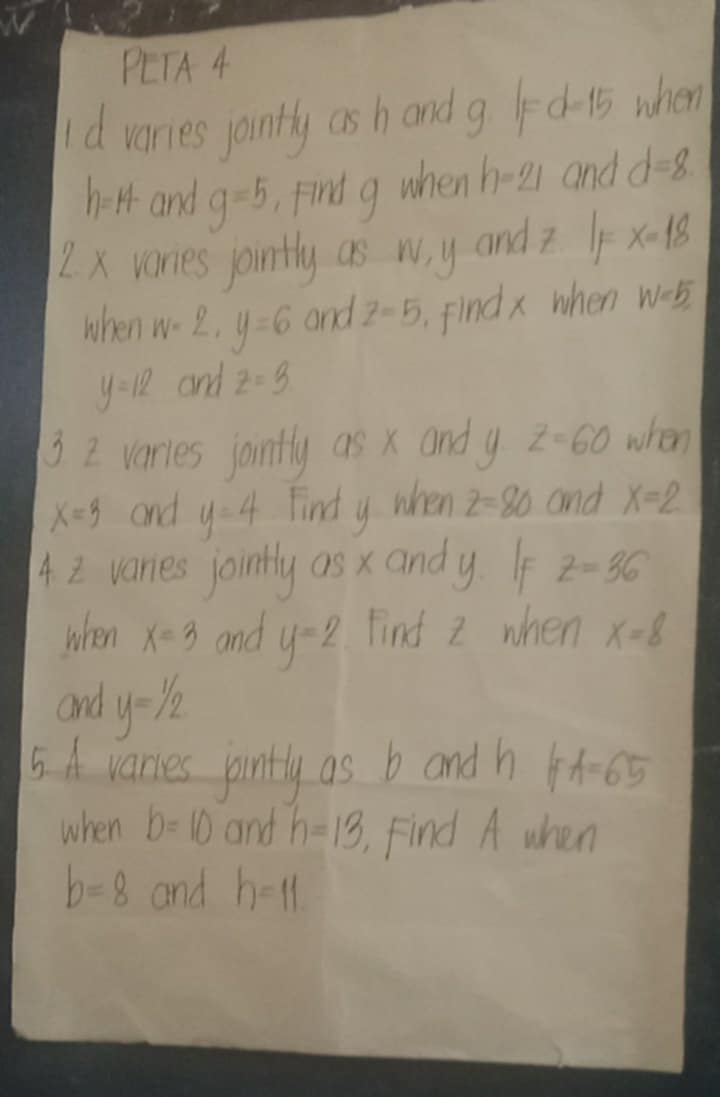 PETA 4
1. d varies jointly as h and g. If d=15 when
h=14 and g=5, Find g when h=21 and d=8.
2. X varies jointly as w, y and z. If x=18
when w=2, y=6 and z=5, Find x when w=5
y=12 and z=3.
3. z varies jointly as x and y. z=60 when
x=3 and y=4. Find y when z=80 and x=2
4. z varies jointly as x and y. If z=36
when x=3 and y=2. Find z when x=8
and y=1/2.
5. A varies jointly as b and h If A=65
when b=10 and h=13, Find A when
b=8 and h=11.